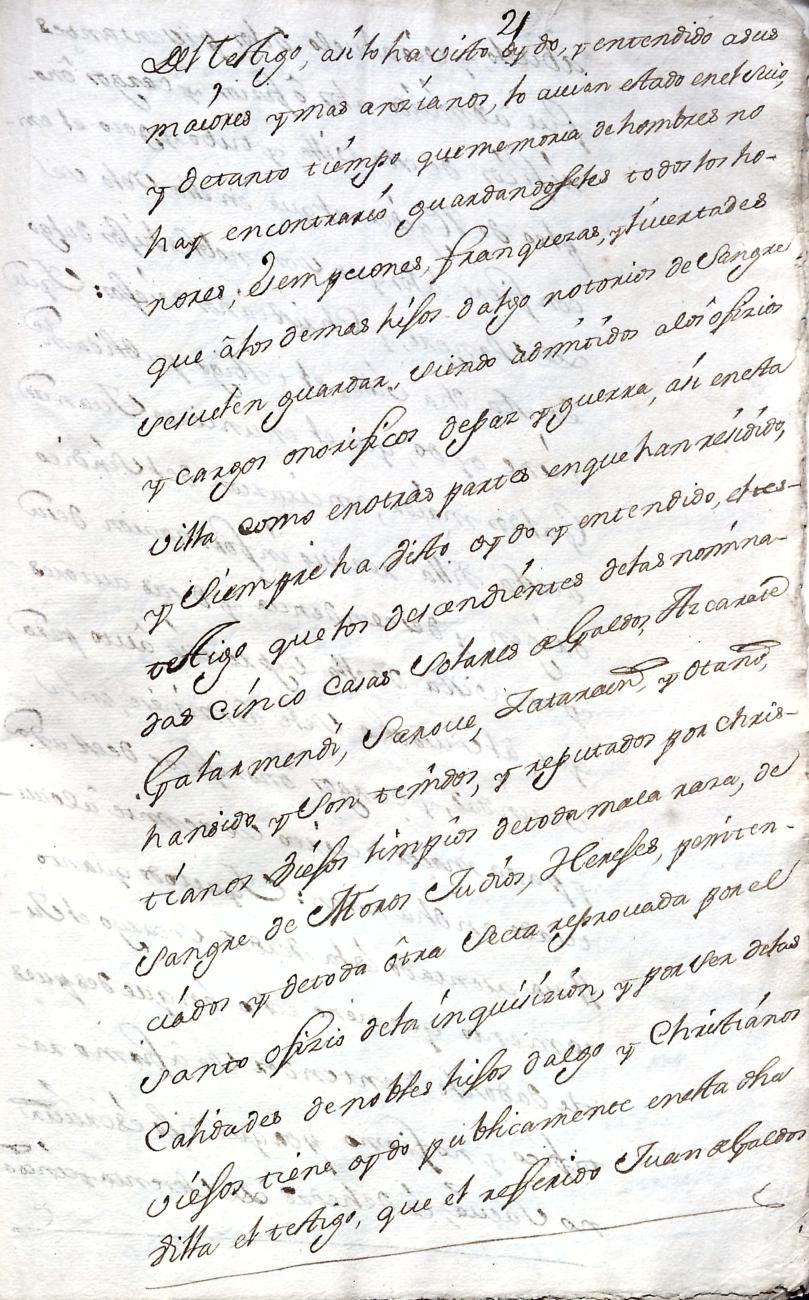 21
del testigo, asi lo ha visto oydo, y entendido a sus
maiores y mas anzianos, lo avian estado en el suio,
y de tanto tiempo que memoria de hombres no
hay encontrario, guardandoseles todos los ho-
nores, esempciones, franquezas, y livertades
que â los demas hisos dalgo notorios de sangre
se suelen guardar, siendo admitidos a los ofizios
y cargos onorificos de paz y guerra, asi en esta
villa como en otras partes en que han residido,
y siempre ha visto oydo y entendido, el tes-
testigo que los descendientes de las nomina-
das cinco casas solares de Galdos, Azcarate
Galarmendi, Saroue, Zatarain, y Otaño,
han sido y son tenidos, y reputados por chris-
tianos viesos limpios de toda mala raza, de
sangre de Moros Judios, Hereses, peniten-
ciados y de toda ôtra secta reprouada por el
santo ofizio de la inquisizion, y por ser de las
Calidades de nobles hisos dalgo y Christianos
viesos tiene oydo publicamente en esta dha
villa el testigo, que el referido Juan de Galdos